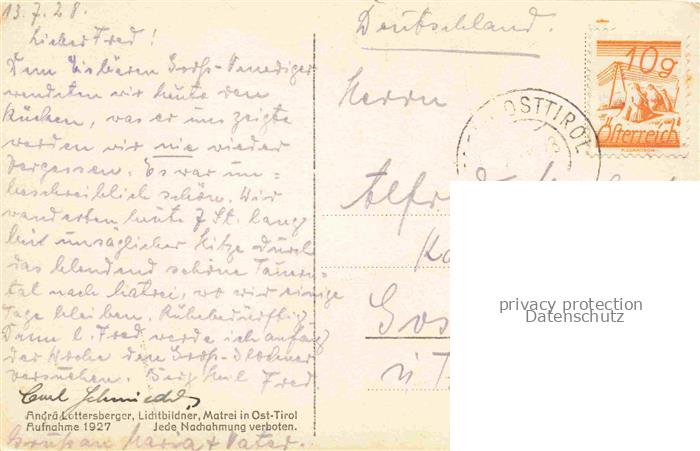 13.7.28.
Lieber Fred!
Dem Eisbären Groß-Venediger
wendeten wir heute den
Rücken, was er uns zeigte
werden wir nie wieder
vergessen. Es war un-
beschreiblich schön. Wir
wanderten heute 7 St. lang
bei unsäglicher Hitze durch
das blendend schöne Tauern-
tal nach Matrei, wo wir einige
Tage bleiben. Ruhebedürftig
Dann l. Fred werde ich anfang
der Woche den Groß-Glockner
versuchen. Berg Heil Fred.
Carl
Andrä Lottersberger, Lichtbildner, Matrei in Ost-Tirol
Aufnahme 1927 Jede Nachahmung verboten.
Gruß an Maria + Vater.
Deutschland.
Herrn
Alfr
Gos
OSTTIROL
10g
Österreich
privacy protection
Datenschutz